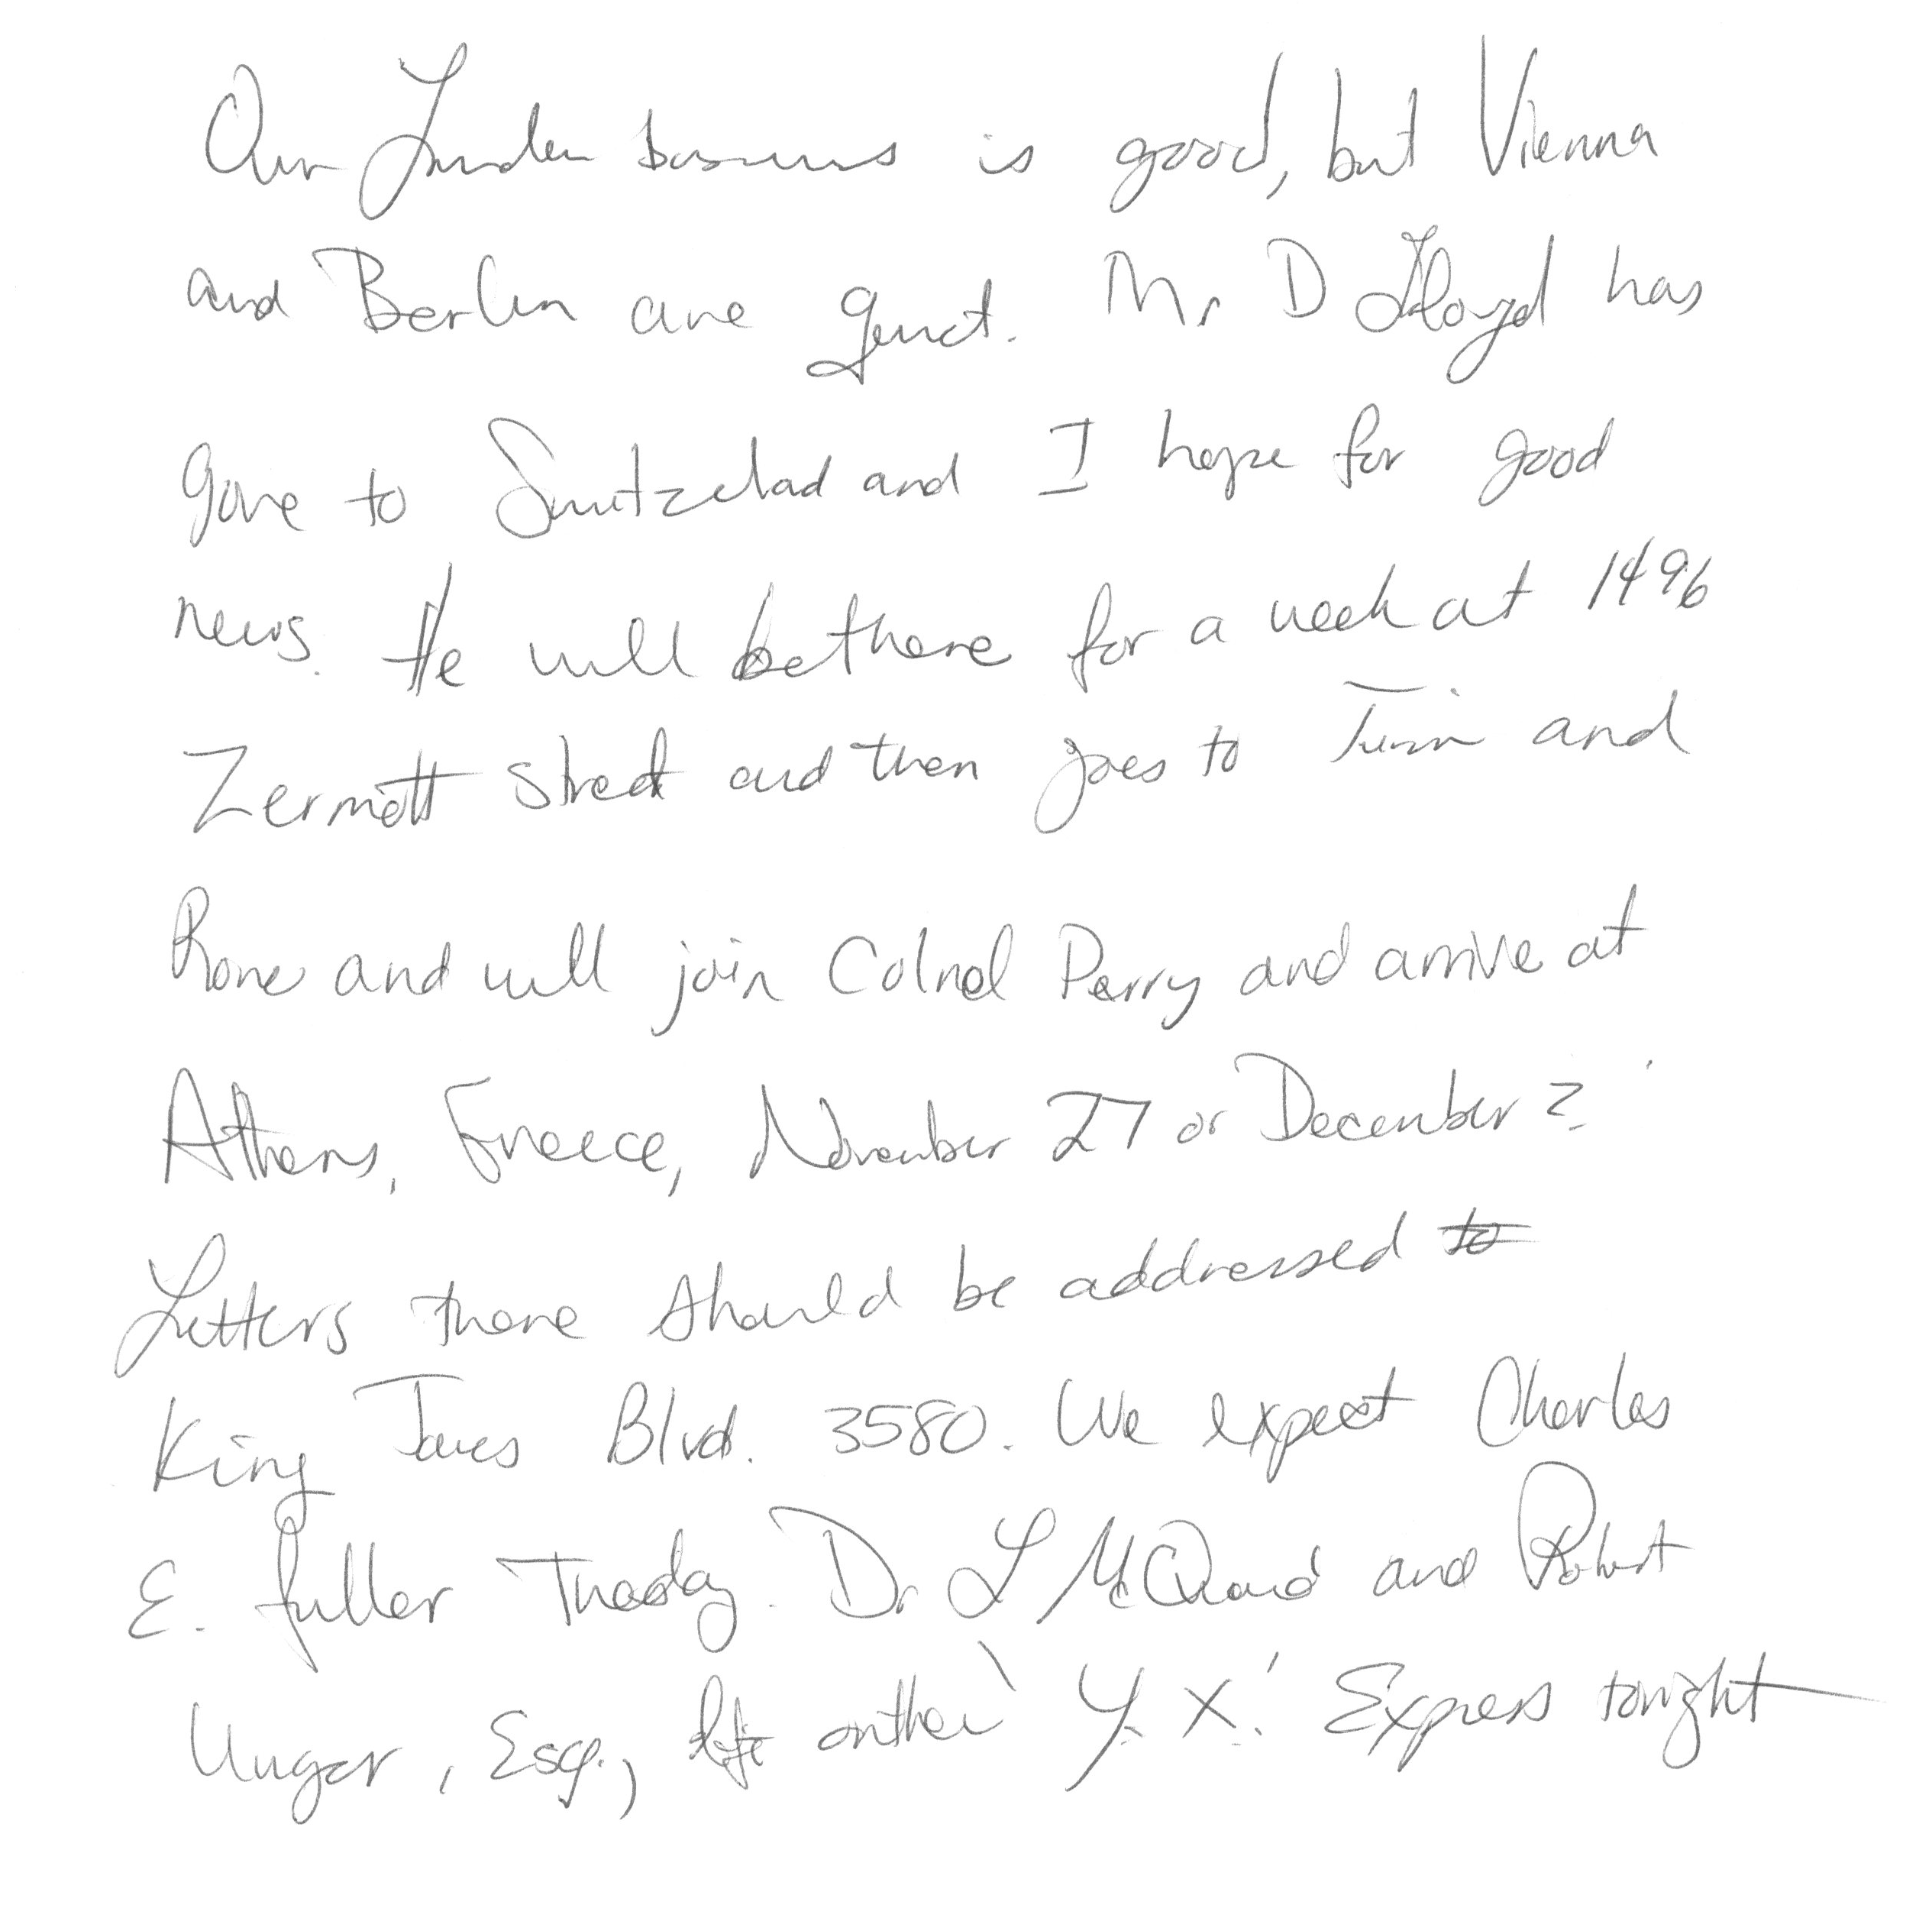 Our London business is good, but Vienna
and Berlin are quiet. Mr D Lloyd has
gone to Switzelad and I hope for good
news. He will be there for a week at 1496
Zermott street and then goes to Turin and
Rome and will join Colnel Perry and arrive at
Athens, Greece, November 27 or December 2.
Letters there should be addressed to
King James Blvd. 3580. We expect Charles
E. fuller Tuesday. Dr L McQuaid and Robert
Unger, Esq., left on the 'Y. X.' Express tonight